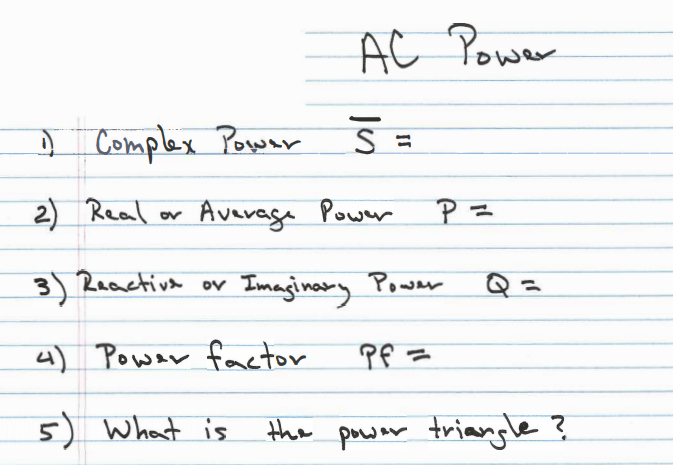 AC Power
1) Complex Power S̅ =
2) Real or Average Power P =
3) Reactive or Imaginary Power Q =
4) Power factor Pf =
5) What is the power triangle?